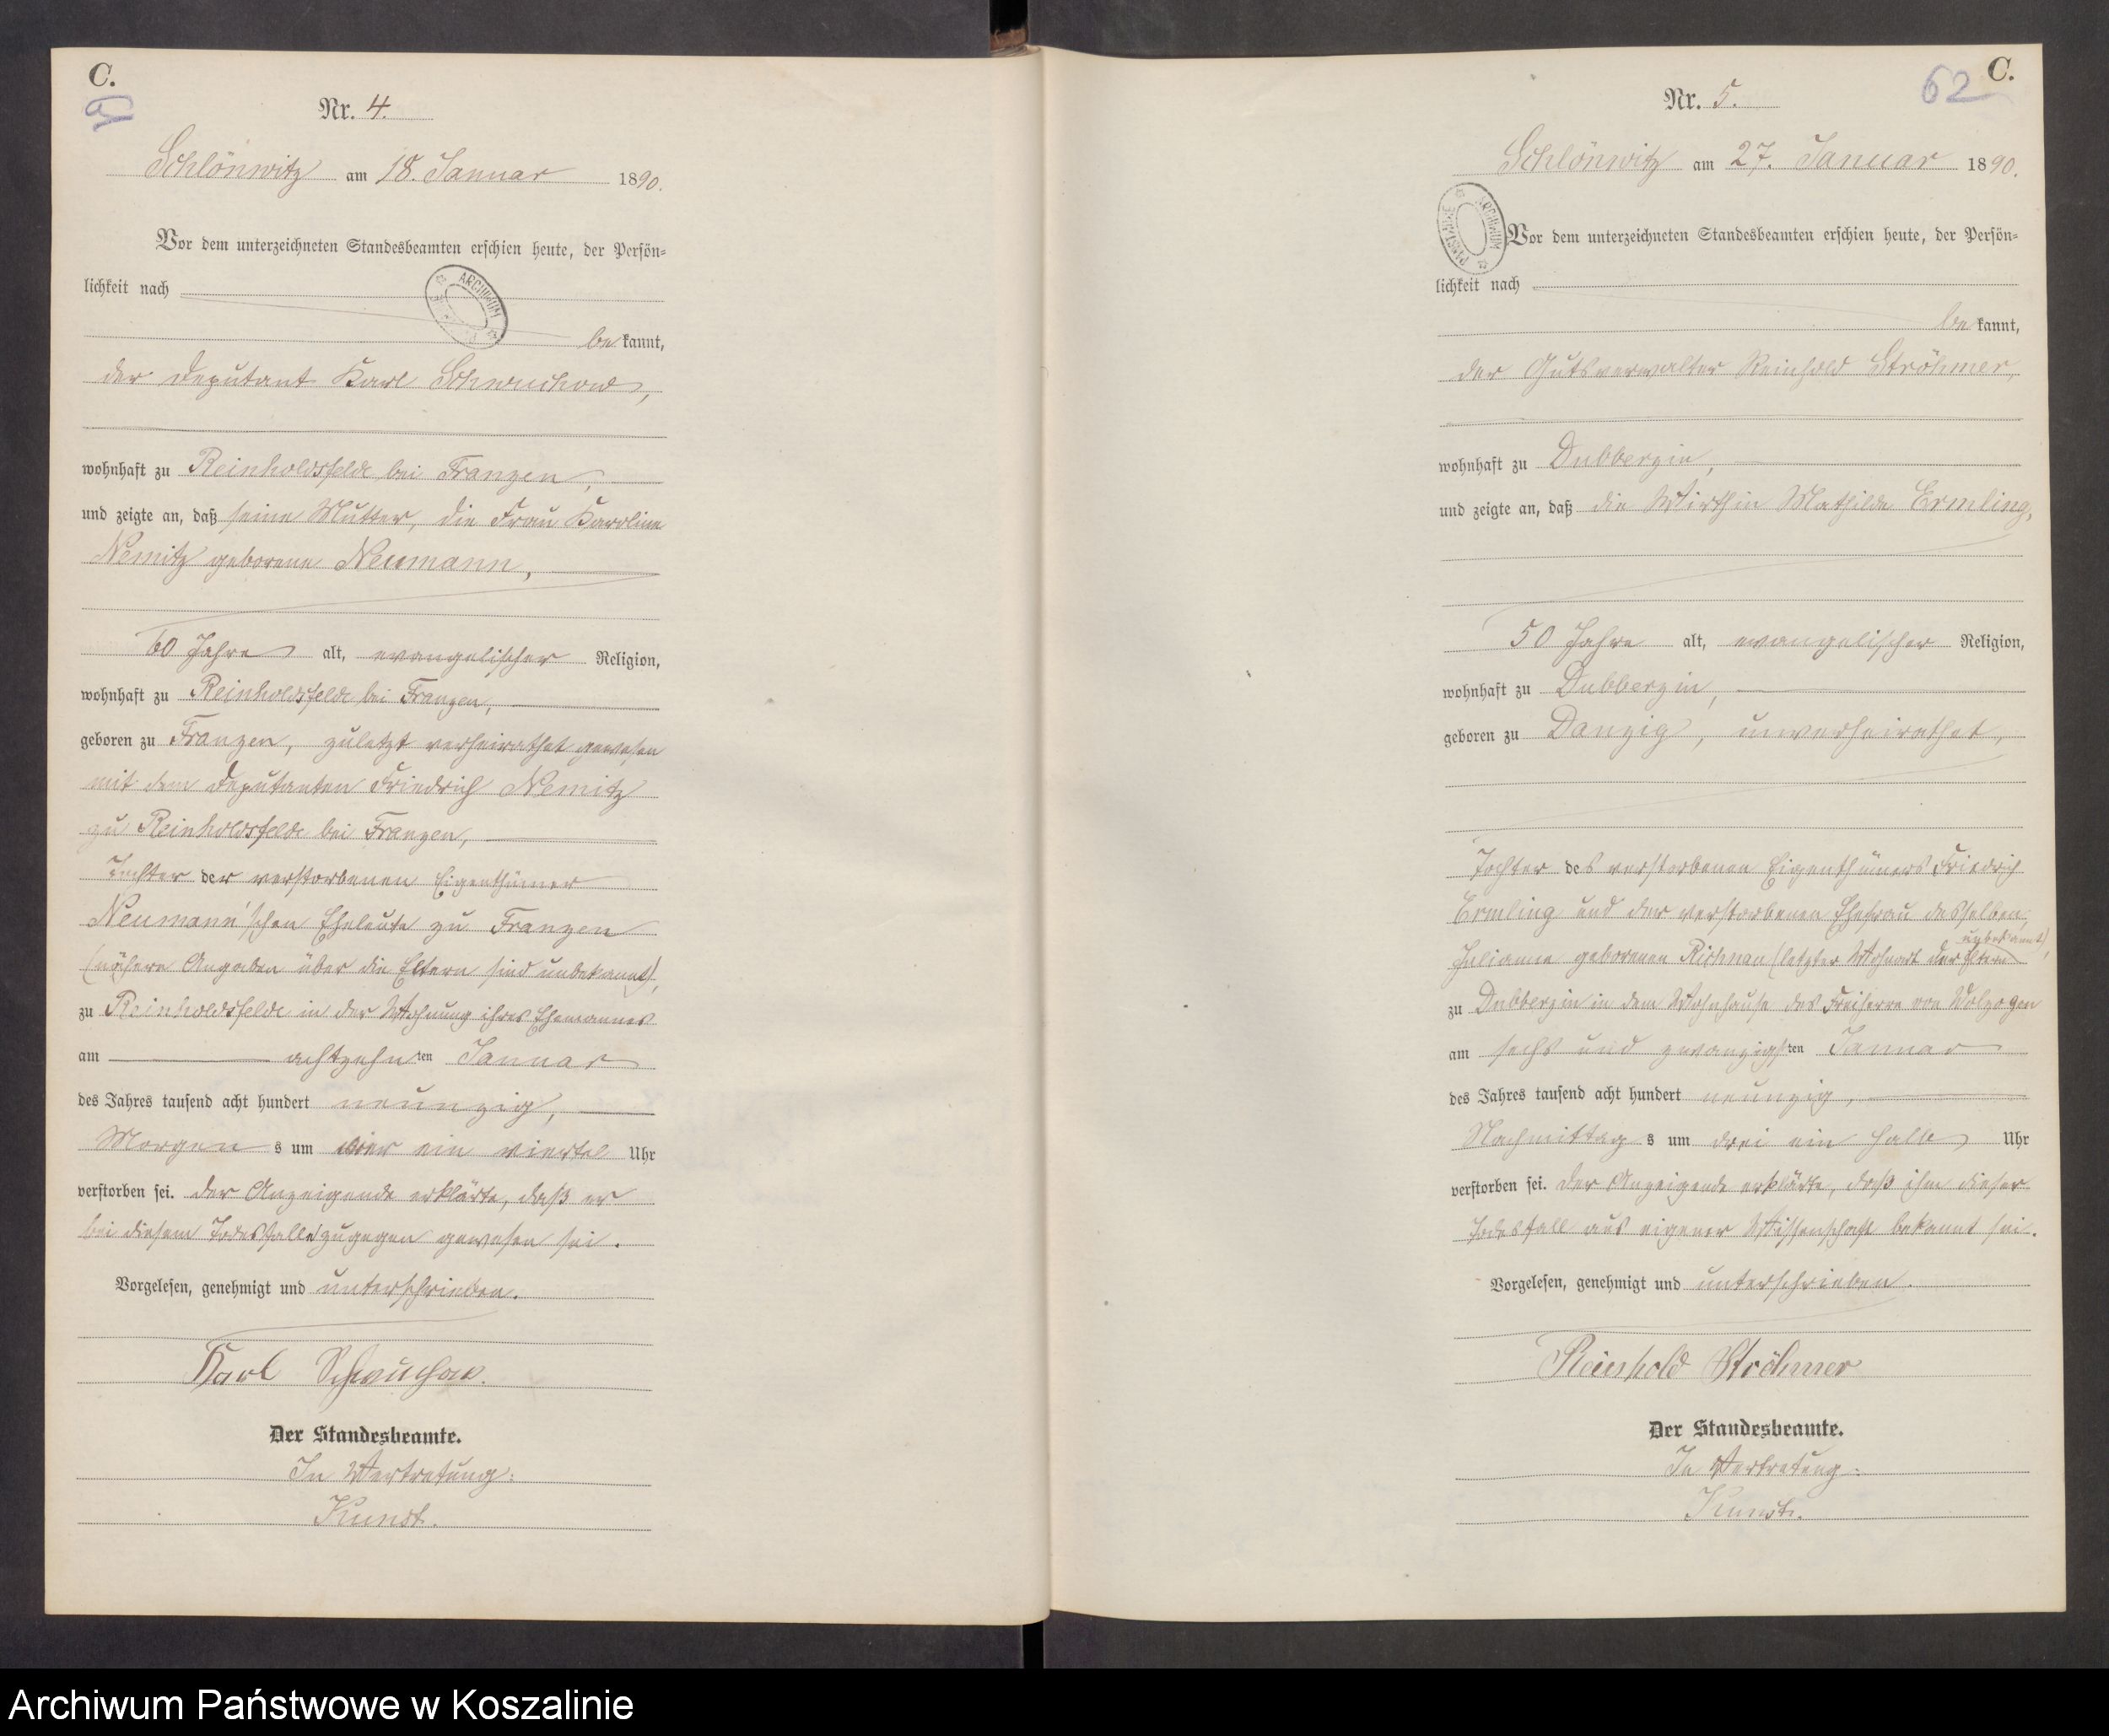 C.
Nr. 4.
Schlönwitz am 18. Januar 1890.
Vor dem unterzeichneten Standesbeamten erschien heute, der Persön-
lichkeit nach
bekannt,
der Deputant Karl
wohnhaft zu Reinholdsfelde bei Franzen,
und zeigte an, daß seine Mutter, die Frau Karoline
Nemitz geborene Neumann,
60 Jahre alt, evangelischer Religion,
wohnhaft zu Reinholdsfelde bei Franzen,
geboren zu Franzen, zuletzt verheirathet gewesen
mit dem Deputanten Friedrich Nemitz
zu Reinholdsfelde bei Franzen,
Tochter der verstorbenen Eigenthümer
Neumann'schen Eheleute zu Franzen
(nähere Angaben über die Eltern sind unbekannt),
zu Reinholdsfelde in der Wohnung ihres Ehemannes
am achtzehnten Januar
des Jahres tausend acht hundert neunzig,
Morgens um vier ein viertel Uhr
verstorben sei. Der Anzeigende erklärte, daß er
bei diesem Todesfalle zugegen gewesen sei.
Vorgelesen, genehmigt und unterschrieben.
Karl
Der Standesbeamte.
In Vertretung:
Kunst.
62 C.
Nr. 5.
Schlönwitz am 27. Januar 1890.
Vor dem unterzeichneten Standesbeamten erschien heute, der Persön-
lichkeit nach
bekannt,
der Gutsverwalter Reinhold Ströhmer,
wohnhaft zu Dubberzin,
und zeigte an, daß die Wirthin Mathilde Ermling,
50 Jahre alt, evangelischer Religion,
wohnhaft zu Dubberzin,
geboren zu Danzig, unverheirathet,
Tochter des verstorbenen Eigenthümers Friedrich
Ermling und der verstorbenen Ehefrau desselben,
unbekannt),
Juliane geborenen (letzter Wohnort der Eltern
zu Dubberzin in dem Wohnhause des Freiherrn von Wolzogen
am sechs und zwanzigsten Januar
des Jahres tausend acht hundert neunzig,
Nachmittags um drei ein halb Uhr
verstorben sei. Der Anzeigende erklärte, daß ihm dieser
Todesfall aus eigener Wissenschaft bekannt sei.
Vorgelesen, genehmigt und unterschrieben.
Reinhold Ströhmer
Der Standesbeamte.
In Vertretung:
Kunst.
Archiwum Państwowe w Koszalinie